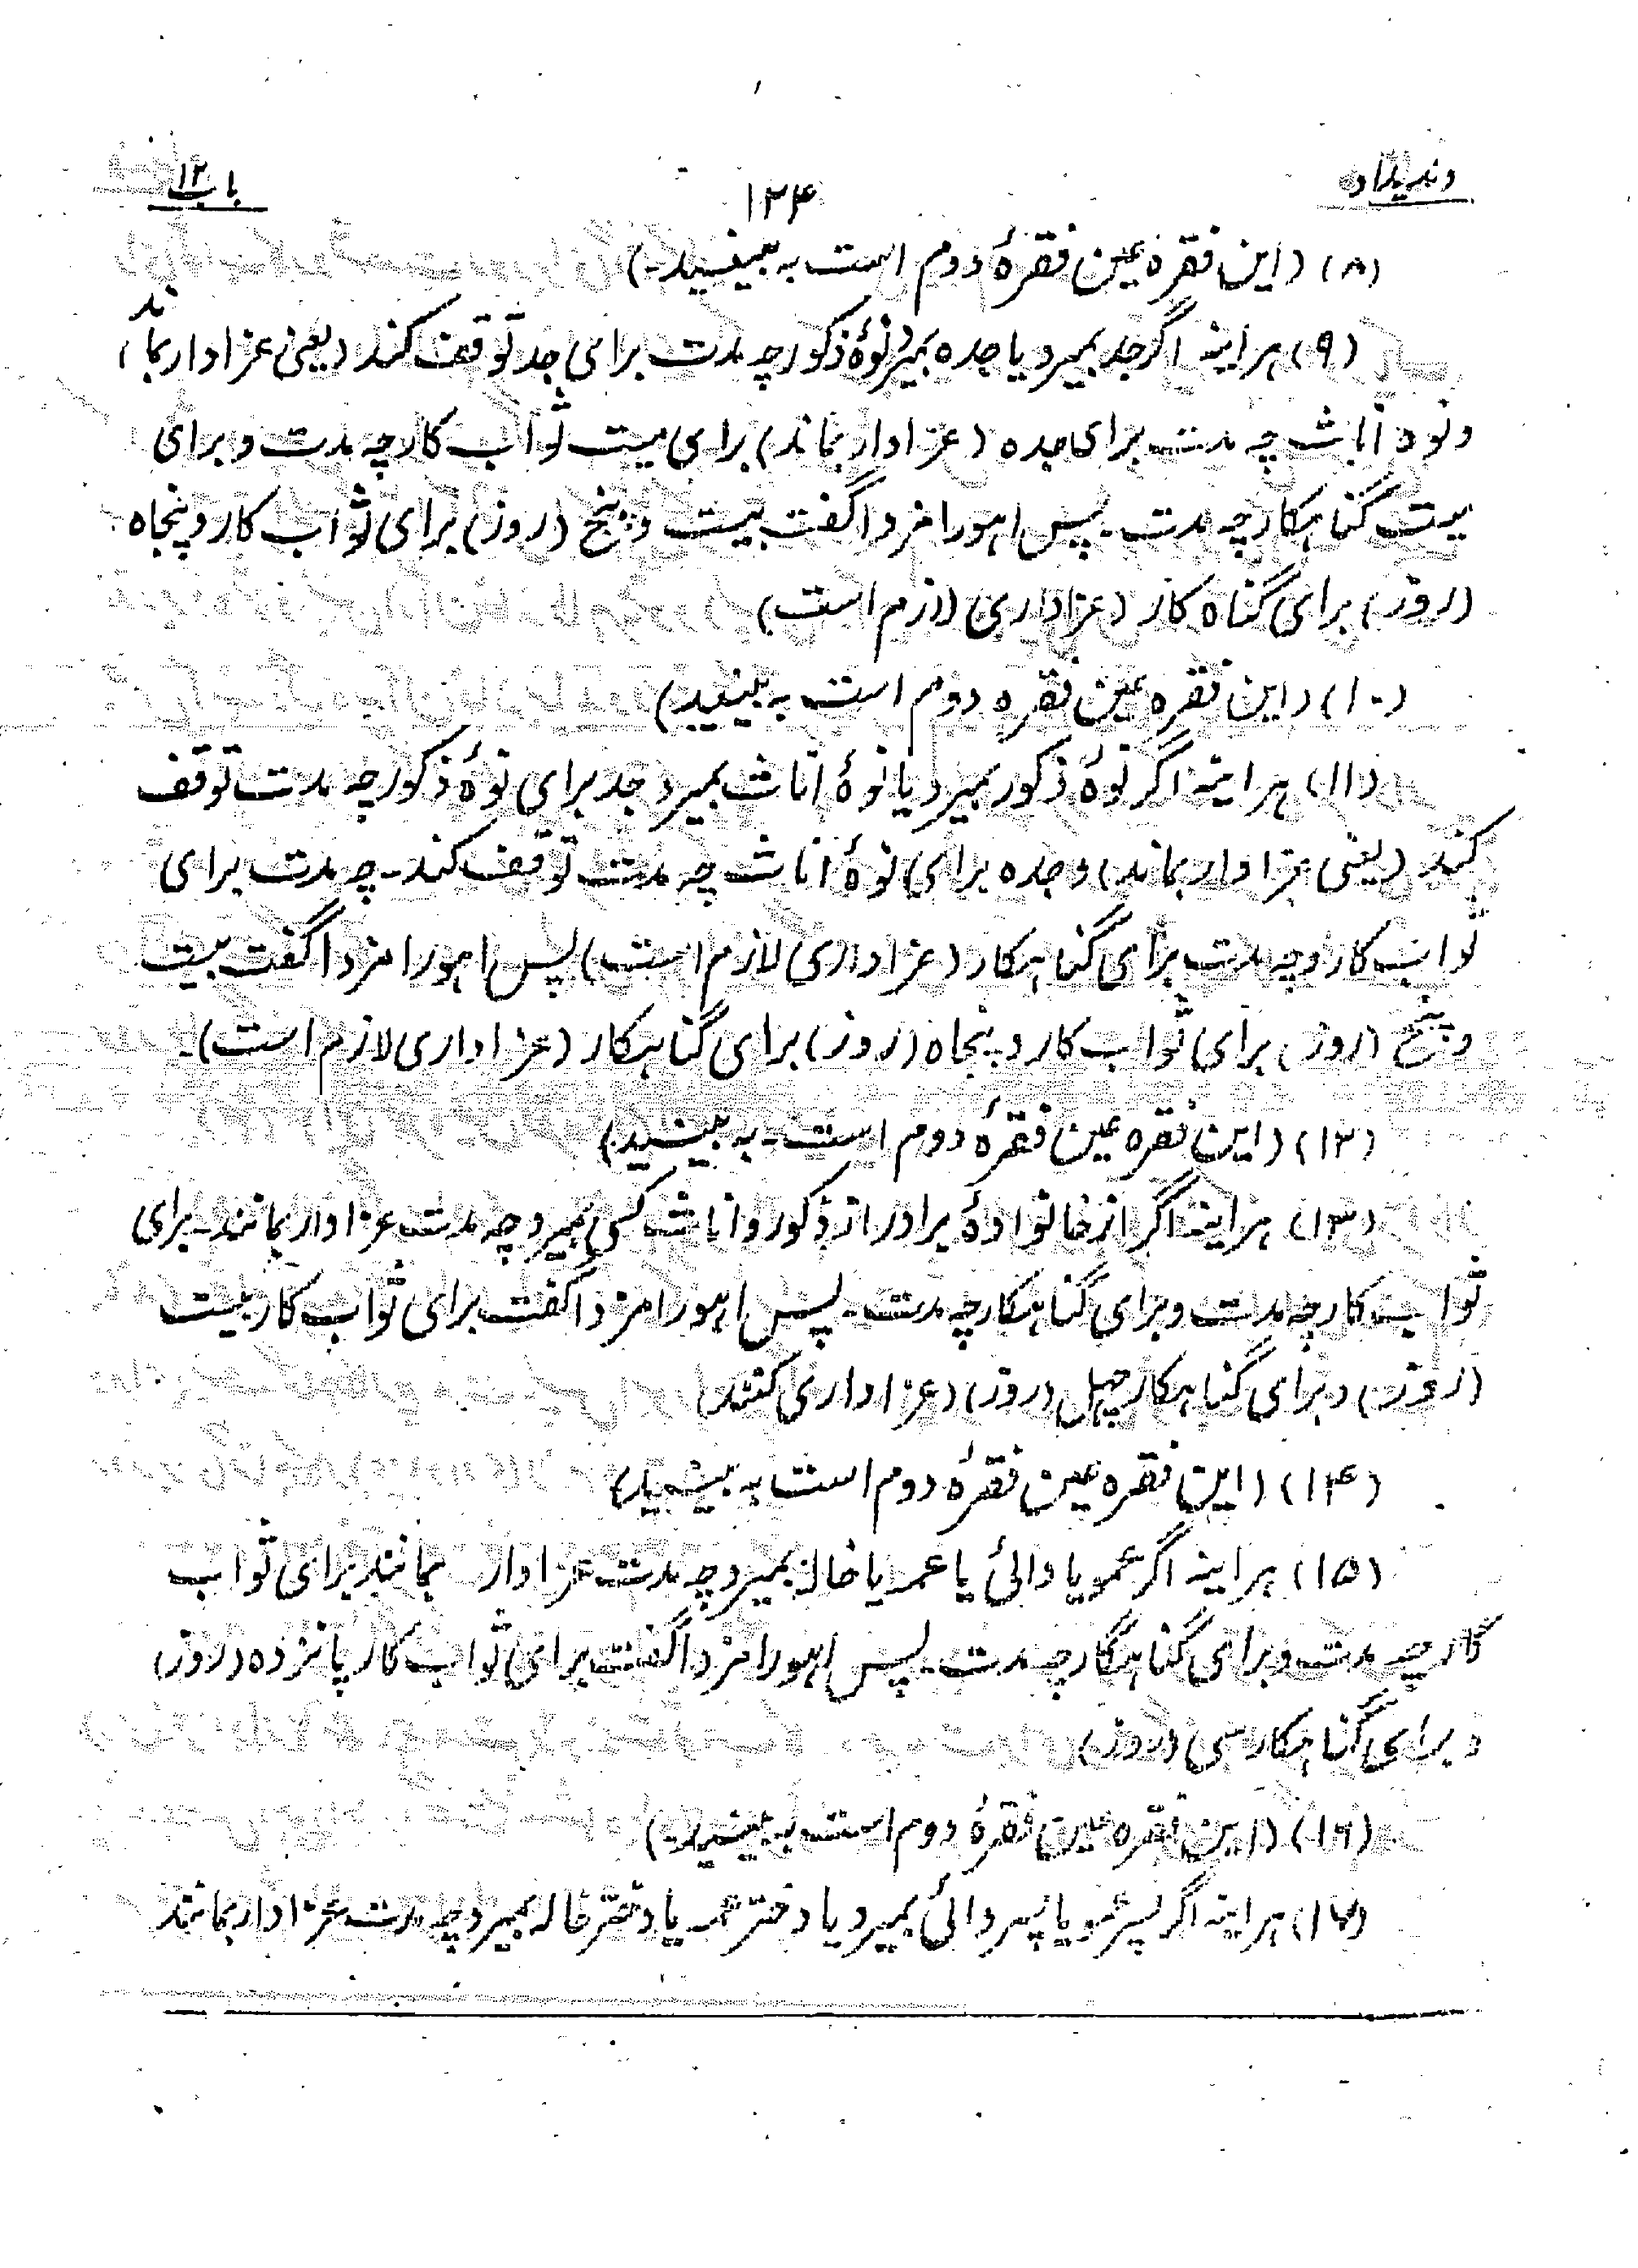 وندیداد
۱۲۴
باب ۱۲
(۸) (این فقره عین فقرهٔ دوم است به بینید-)
(۹) هر اینه اگر جد بمیرد یا جده بمیرد نوهٔ ذکور چه مدت برای جد توقف کند (یعنی عزادار بماند)
و نوه اناث چه مدت برای جده (عزادار بماند) برای میت ثواب کار چه مدت و برای
میت گناهکار چه مدت - پس اهورامزدا گفت بیست و پنج (روز) برای ثواب کار و پنجاه
(روز) برای گناه کار (عزاداری لازم است)
(۱۰) (این فقره عین فقره دوم است به بینید)
(۱۱) هر اینه اگر نوهٔ ذکور بمیرد یا نوهٔ اناث بمیرد جد برای نوهٔ ذکور چه مدت توقف
کند (یعنی عزادار بماند) و جده برای نوهٔ اناث چه مدت توقف کند - چه مدت برای
ثواب کار و چه مدت برای گناهکار (عزاداری لازم است) پس اهورامزدا گفت بیست
و پنج (روز) برای ثواب کار و پنجاه (روز) برای گناهکار (عزاداری لازم است)-
(۱۲) (این فقره عین فقرهٔ دوم است - به بینید)
(۱۳) هر اینه اگر از خانوادهٔ برادر از ذکور و اناث کسی بمیرد چه مدت عزادار بمانند - برای
ثواب کار چه مدت و برای گناهکار چه مدت - پس اهورامزدا گفت برای ثواب کار بیست
(روز) و برای گناهکار چهل (روز) (عزاداری کنند)
(۱۴) (این فقره عین فقرهٔ دوم است به بینید)
(۱۵) هر اینه اگر عمو یا دائی یا عمه یا خاله بمیرد چه مدت عزادار بمانند برای ثواب
کار چه مدت و برای گناهکار چه مدت - پس اهورامزدا گفت برای ثواب کار پانزده (روز)
و برای گناهکار سی (روز)
(۱۶) (این فقره عین فقرهٔ دوم است به بینید-)
(۱۷) هر اینه اگر پسر عمو یا پسر دائی بمیرد یا دختر عمه یا دختر خاله بمیرد چه مدت عزادار بمانند